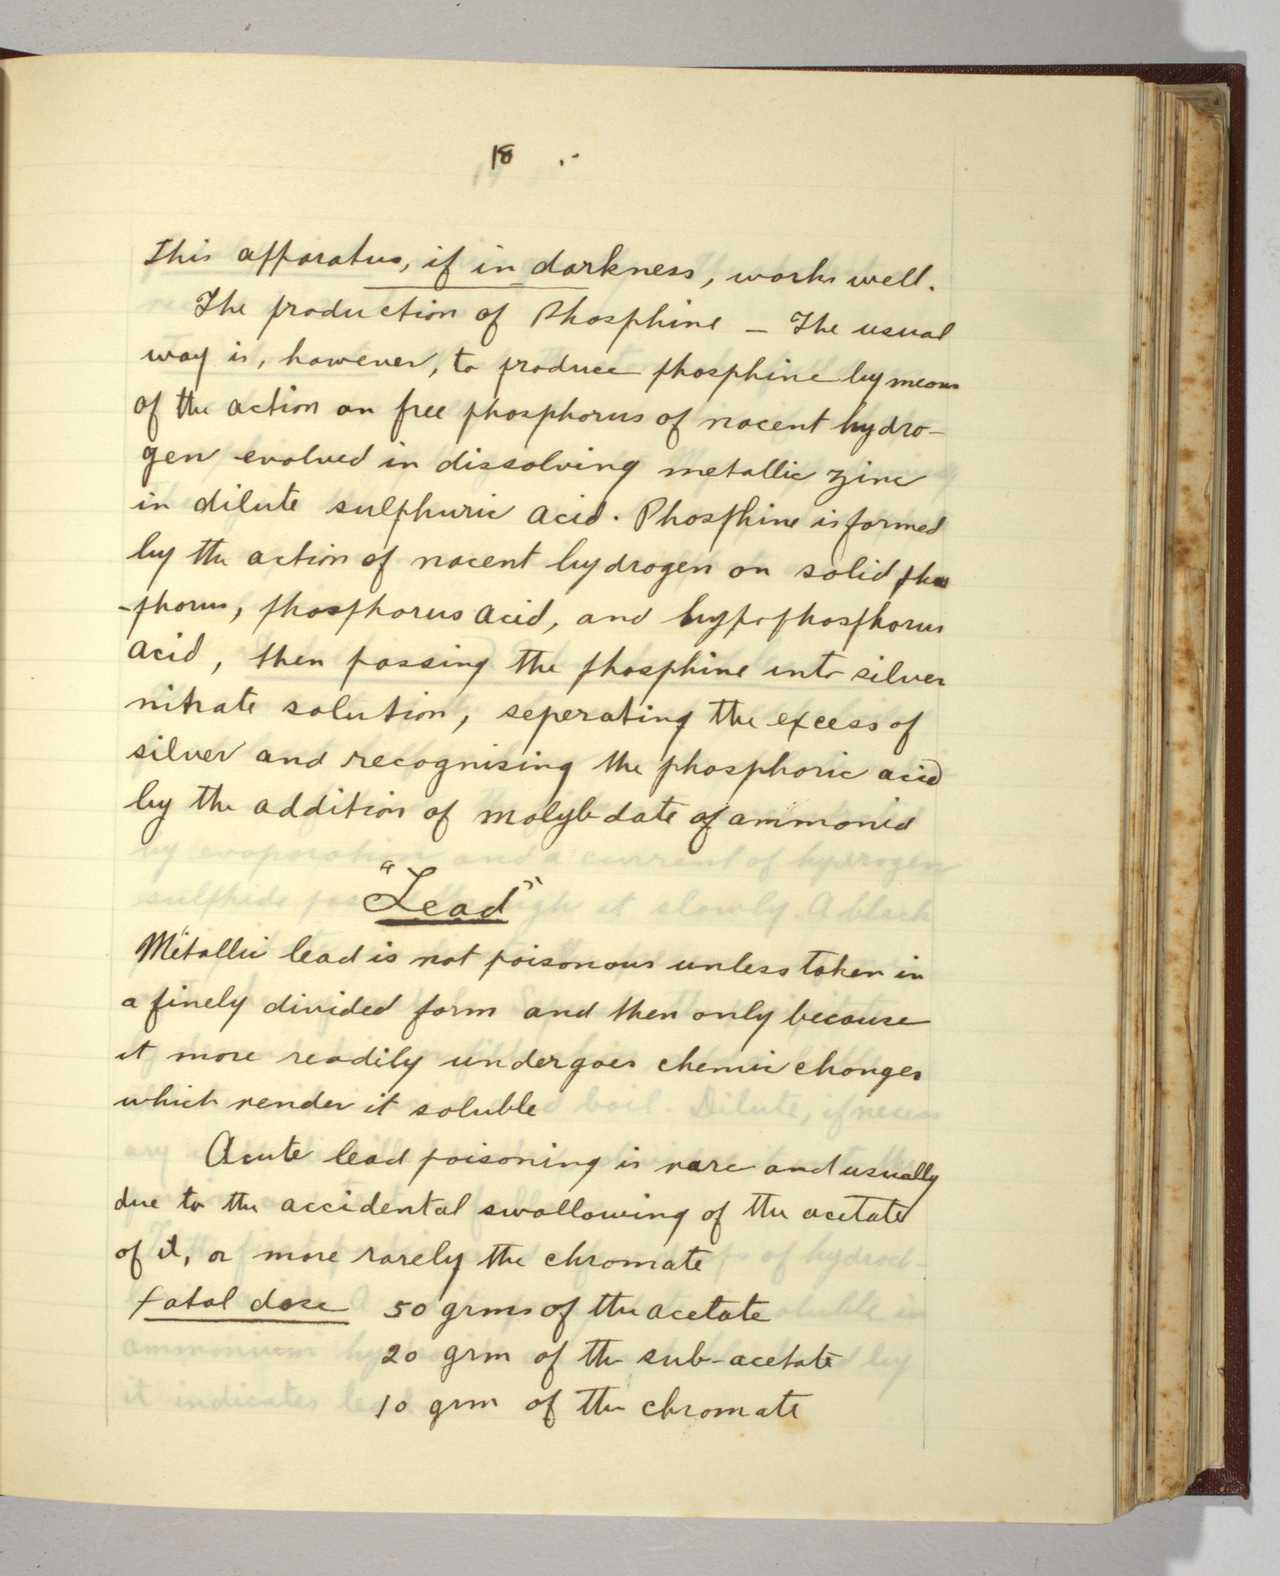 18
This apparatus, if in darkness, works well.
The production of Phosphine — The usual
way is, however, to produce phosphine by means
of the action on free phosphorus of nacent hydro-
gen evolved in dissolving metallic zinc
in dilute sulphuric acid. Phosphine is formed
by the action of nacent hydrogen on solid phos
-phorus, phosphorus acid, and hypophosphorus
acid, then passing the phosphine into silver
nitrate solution, seperating the excess of
silver and recognising the phosphoric acid
by the addition of molybdate of ammonia
"Lead"
Metallic lead is not poisonous unless taken in
a finely divided form and then only because
it more readily undergoes chemic changes
which render it soluble
Acute lead poisoning is rare and usually
due to the accidental swallowing of the acetate
of it, or more rarely the chromate
fatal dose 50 grms of the acetate
20 grm of the sub-acetate
10 grm of the chromate